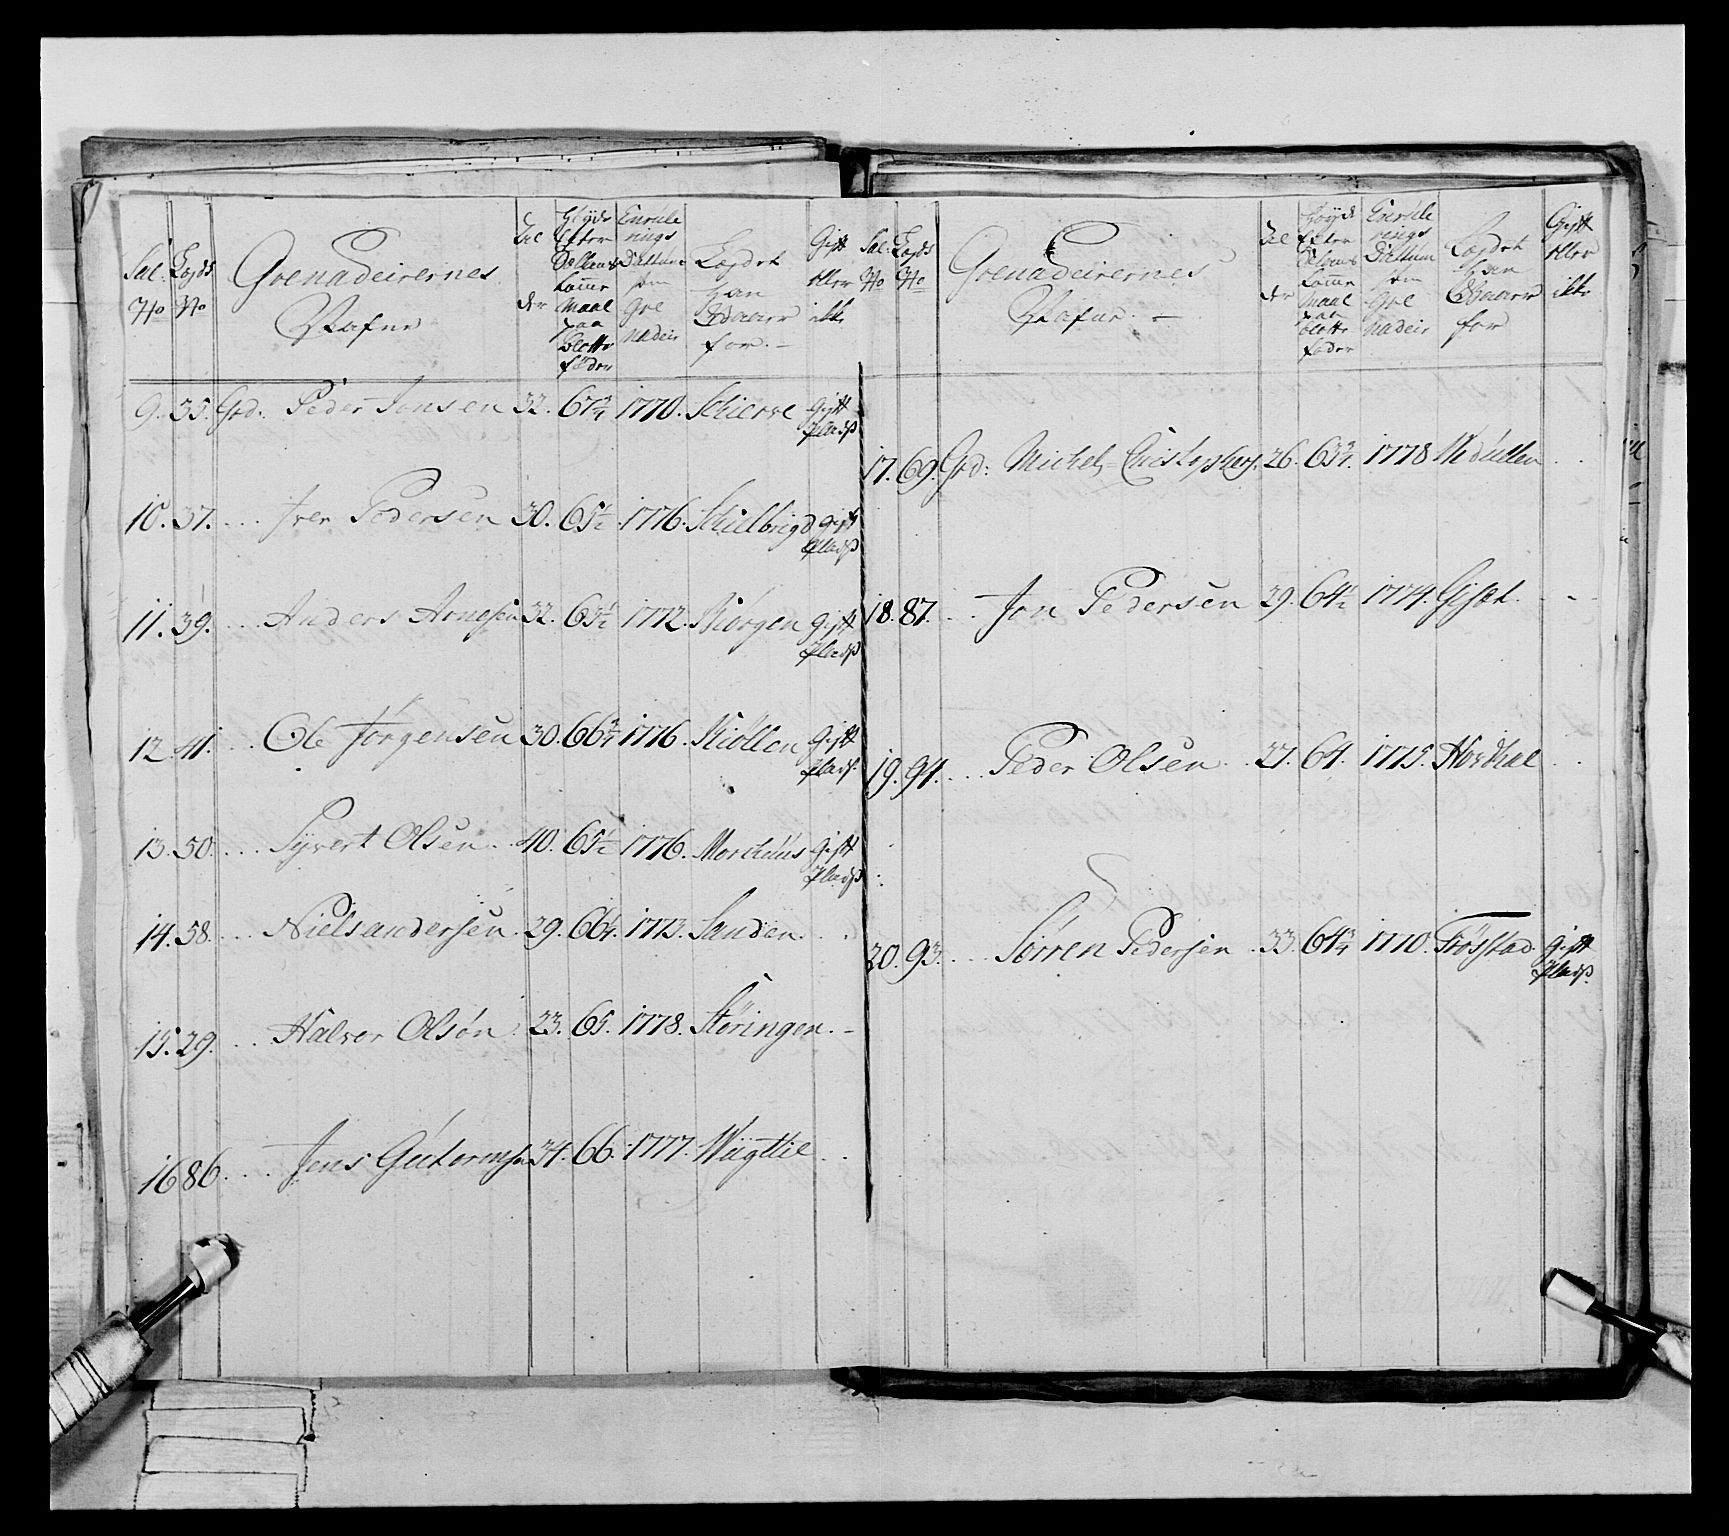 Sal: No
Legds No
Grenadeirernes Nafne
Al der
Høyde Efter Sællans Tomme Maal paa blotte fødder
Enrulerings Dattum som Grenadeir
Legdet han Svaarer for. –
Gift eller ikke
9. 35. Grd: Peder Jonsen 32. 67 3/4 1770. Schierve Gift pladß
10. 37. . . . Iver Pedersen 30. 65 1/2 1776. Schielbrigd Gift pladß
11. 39. . . . Anders Arnesen 32. 63 1/2 1772. Kiorgen Gift pladß
12. 41. . . . Ole Jørgensen 30. 66 3/4 1776. Kiøllen Gift pladß
13. 50. . . . Syvert Olsen. 40. 65 1/2 1776. Morchuus Gift pladß
14. 58. . . . Niels andersen. 29. 66 1/4. 1773. Sanden. . .
15. 29. . . . Halvor Olsøn. 23. 65. 1778. Støringen. –
16 86. . . . Jens Gutormsen 34. 66. 1777. Wügttil . .
Sal: No
Legds No
Grenadeirernes Nafne. –
Al der
Høyde Efter Sælans Tomme Maal paa blotte føder
Enrulerings Dattum som Grenadeir
Legdet han Svaarer for
Gift eller ikke
17. 69. Grd: Michel Christophers. 26. 63 3/4. 1778 Medüllen . .
18. 87. . . . Jon Pedersen 29. 64 1/2 1774. Giset. – –
19. 94. . . . Peder Olsen. 27. 64. 1775. Hordhal . .
20. 93. . . . Sørren Pedersen. 33. 64 3/4 1770. Frøsstad. Gift pladß.